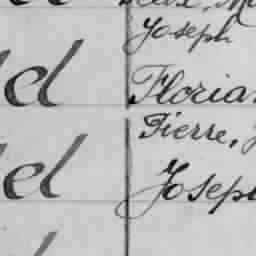 Joseph
el Florian
Pierre, J
el Joseph